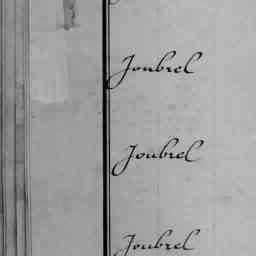 Joubrel
Joubrel
Joubrel